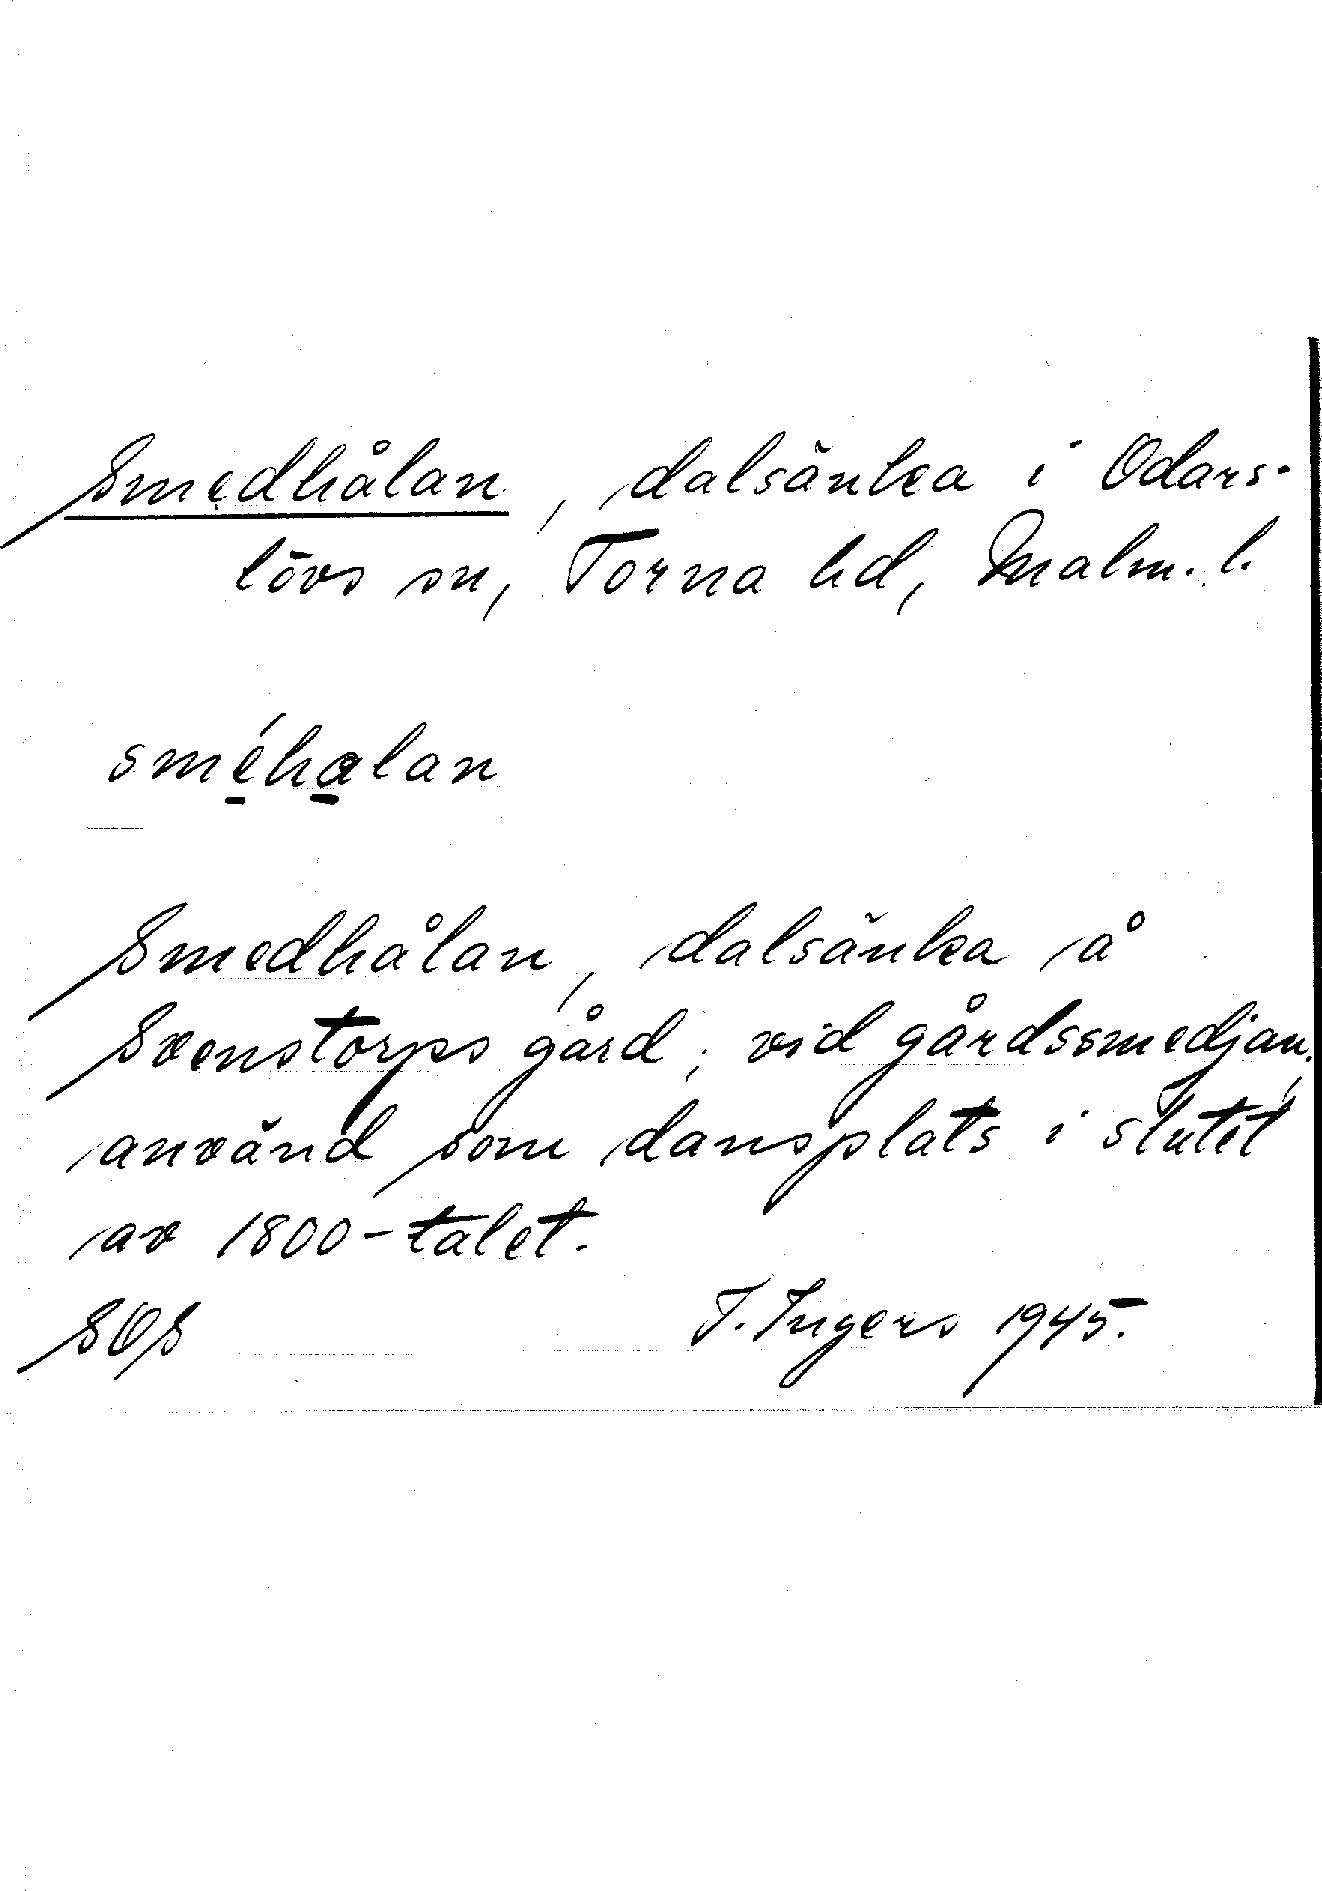 Smedhålan, dalsänka i Odars-
lövs sn, Torna hd, Malm. l.
sméhalan
Smedhålan, dalsänka å
Svenstorps gård; vid gårdssmedjan;
använd som dansplats i slutet
av 1800-talet.
SOS I. Ingers 1945.